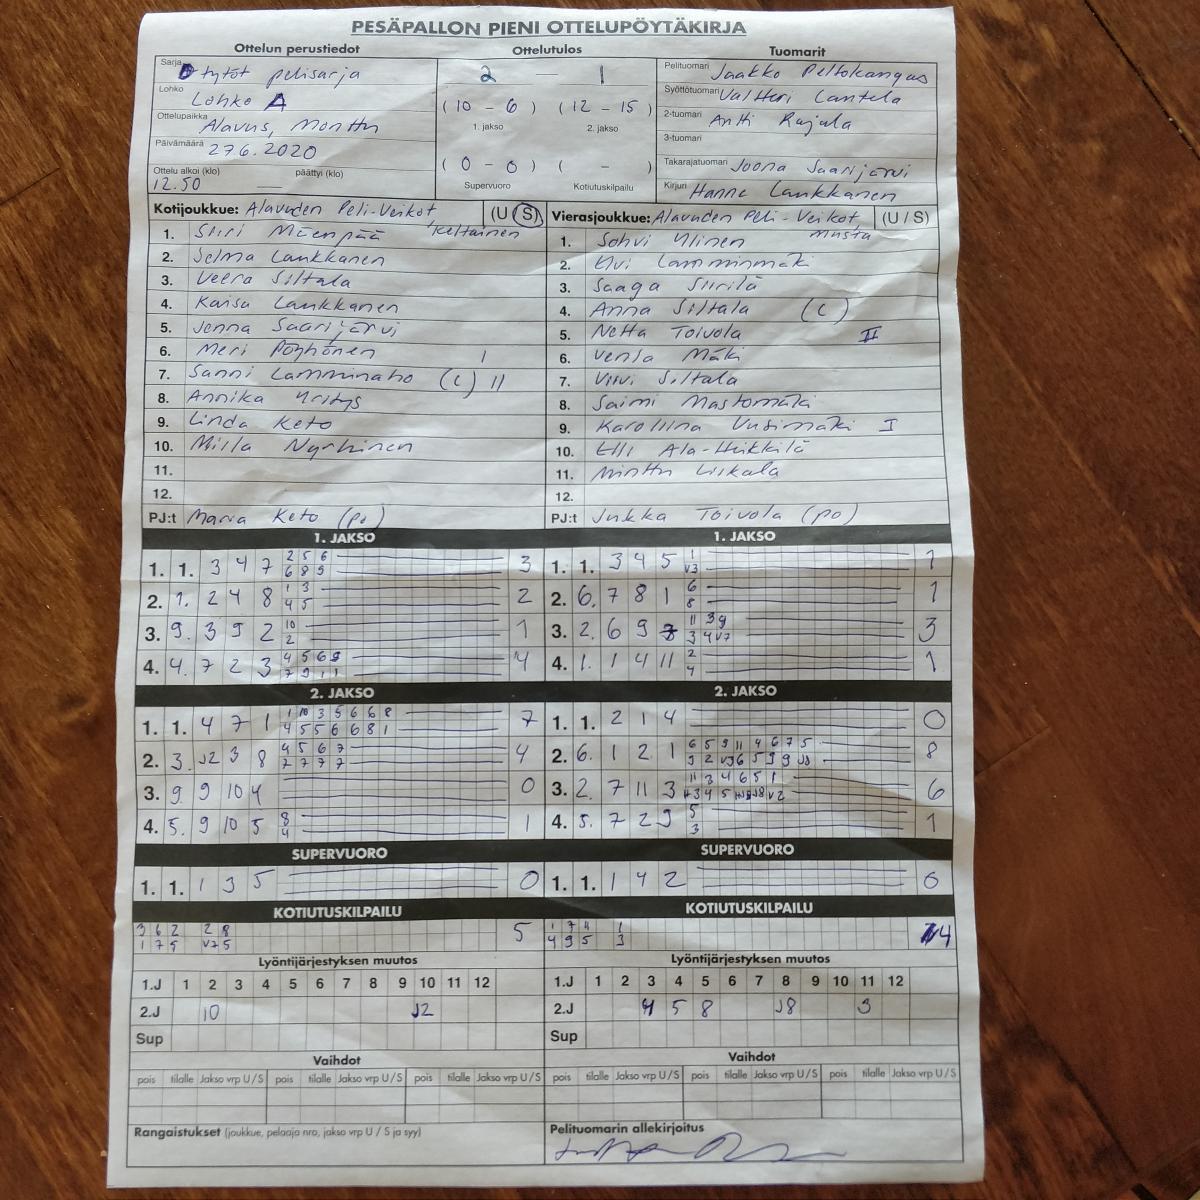 PESÄPALLON PIENI OTTELUPÖYTÄKIRJA
Ottelun perustiedot
Sarja D tytöt pelisarja
Lohko Lohko A
Ottelupaikka Alavus, Monttu
Päivämäärä 27.6.2020
Ottelu alkoi (klo) päättyi (klo)
12.50 —
Ottelutulos
2 — 1
(10 - 6) (12 - 15)
1. jakso 2. jakso
(0 - 0) ( - )
Supervuoro Kotiutuskilpailu
Tuomarit
Pelituomari Jaakko Peltokangas
Syöttötuomari Valtteri Lantela
2-tuomari Antti Rajala
3-tuomari
Takarajatuomari Joona Saarijärvi
Kirjuri Hanne Laukkanen
Kotijoukkue: Alavuden Peli-Veikot (U/S)
keltainen
1. Siiri Mäenpää
2. Selma Laukkanen
3. Veera Siltala
4. Kaisa Laukkanen
5. Jenna Saarijärvi
6. Meri Pöyhönen I
7. Sanni Lamminaho (C) II
8. Annika Yritys
9. Linda Keto
10. Milla Nyrhinen
11.
12.
PJ:t Maria Keto (po)
Vierasjoukkue: Alavuden Peli-Veikot (U/S)
musta
1. Sohvi Ylinen
2. Elvi Lamminmäki
3. Saaga Siirilä
4. Anna Siltala (C)
5. Netta Toivola II
6. Venla Mäki
7. Viivi Siltala
8. Saimi Mastomäki
9. Karoliina Uusimäki I
10. Elli Ala-Heikkilä
11. Minttu Liikala
12.
PJ:t Jukka Toivola (po)
1. JAKSO
1. 1. 3 4 7 2 5 6 3
6 8 9
2. 1. 2 4 8 1 3 2
4 5
3. 9. 3 9 2 10 1
2
4. 4. 7 2 3 4 5 6 9 4
7 9 1 1
1. JAKSO
1. 1. 3 4 5 1 1
v3
2. 6. 7 8 1 6 1
8
3. 2. 6 9 3
4. 1. 1 4 11 2 1
4
2. JAKSO
1. 1. 4 7 1 1 10 3 5 6 6 8 7
4 5 5 6 6 8 1
2. 3. J2 3 8 4 5 6 7 4
7 7 7 7
3. 9. 9 10 4 0
4. 5. 9 10 5 8 1
4
2. JAKSO
1. 1. 2 1 4 0
2. 6. 1 2 1 6 5 9 11 4 6 7 5 8
3. 2. 7 11 3 11 3 4 6 5 1 6
4. 5. 7 2 9 5 1
3
SUPERVUORO
1. 1. 1 3 5 0
SUPERVUORO
1. 1. 1 4 2 0
KOTIUTUSKILPAILU
3 6 2 2 8 5
1 7 9 v7 5
KOTIUTUSKILPAILU
1 7 4 1 4
4 9 5 3
Lyöntijärjestyksen muutos
1.J 1 2 3 4 5 6 7 8 9 10 11 12
2.J 10 J2
Sup
Lyöntijärjestyksen muutos
1.J 1 2 3 4 5 6 7 8 9 10 11 12
2.J 4 5 8 J8 3
Sup
Vaihdot
pois tilalle Jakso vrp U/S pois tilalle Jakso vrp U/S pois tilalle Jakso vrp U/S
Vaihdot
pois tilalle Jakso vrp U/S pois tilalle Jakso vrp U/S pois tilalle Jakso vrp U/S
Rangaistukset (joukkue, pelaaja nro, jakso vrp U / S ja syy)
Pelituomarin allekirjoitus